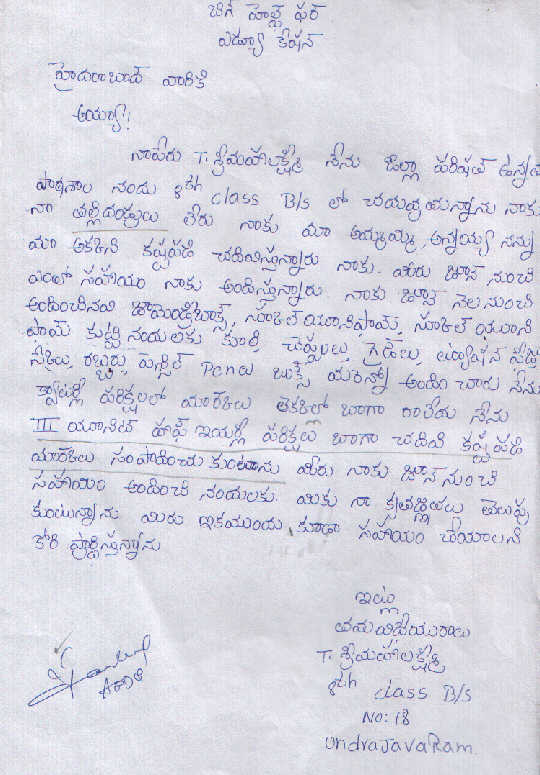 బిగ్ హెల్ప్ ఫర్
ఎడ్యూ కేషన్
హైదరాబాద్ వారికి
అయ్యా!
నాపేరు T. శ్రీమహాలక్ష్మి నేను జిల్లా పరిషత్ ఉన్నత
పాఠశాల నందు 8th class B/s లో చదువుతున్నాను నాకు
నా తల్లిదండ్రులు లేరు నాకు మా అమ్మమ్మ అన్నయ్య నన్ను
మా అక్కని కష్టపడి చదివిస్తున్నారు నాకు. మీరు జూన్ నుంచి
ఎంతో సహాయం నాకు అందిస్తున్నారు. నాకు జూన్ నెల నుంచి
అందించినవి జామెండ్రీబాక్స్, స్కూల్ యూనిఫామ్, స్కూల్ యూని
ఫామ్ కుట్టి నందులకు కూలి చెప్పులు, గైడ్లు, ట్యూషన్ ఫీజు
పెన్లు, రబ్బర్లు పెన్సిల్ Pencil బుక్స్ యివన్నీ అందించారు నేను
క్వాటర్లీ పరిక్షలలో మార్కులు లెక్కల్లో బాగా రాలేదు నేను
III యూనిట్ హాఫ్ ఇయర్లీ పరిక్షలు బాగా చదివి కష్టపడి
మార్కులు సంపాదించు కుంటాను మీరు నాకు జూన్ నుంచి
సహాయం అందించి నందులకు. మికు నా కృతజ్ఞతలు తెలుపు
కుంటున్నాను మీరు ఇకముందు కూడా సహాయం చేయాలని
కోరి ప్రార్థిస్తున్నాను
ఇట్లు
తమవిధేయురాలు
T. శ్రీమహాలక్ష్మి
8th class B/s
No: 18
Undrajavaram